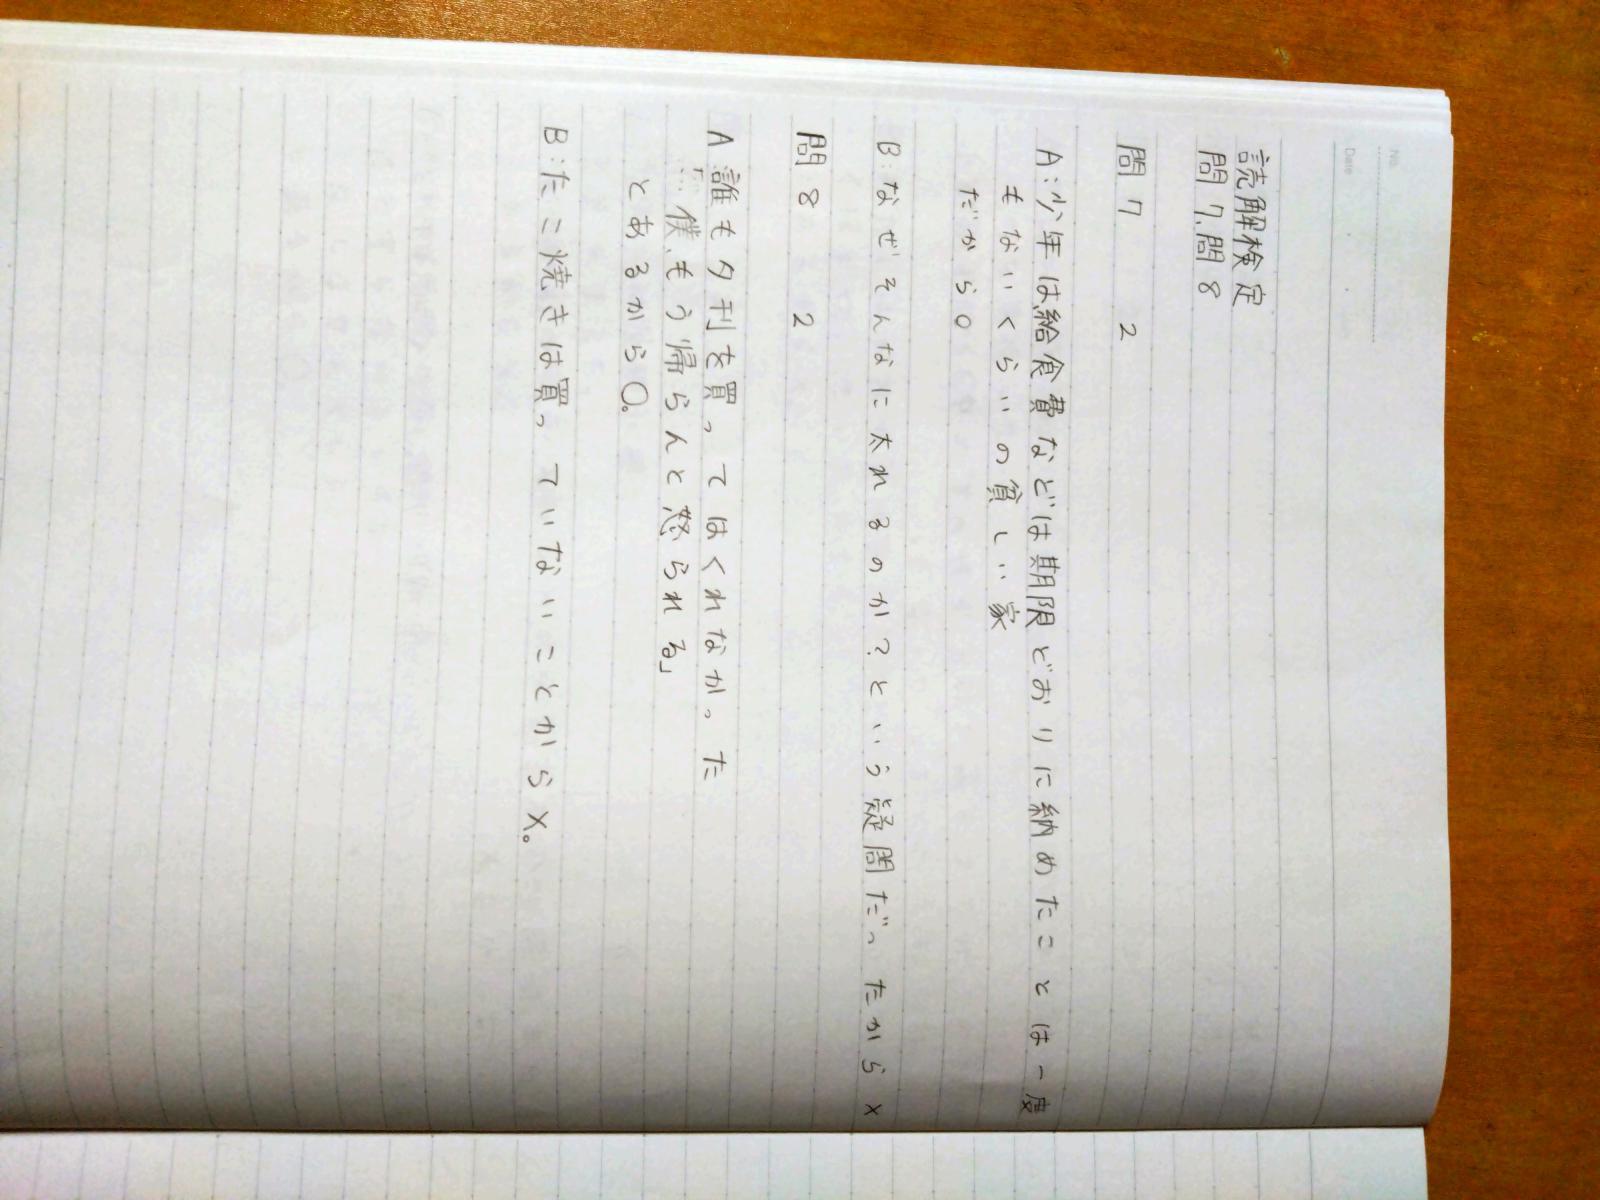 No.
Date
読解検定
問7,問8
問7 2
A:少年は,給食費などは期限どおりに納めたことは一度
もないくらいの貧しい家
だから○
B:なぜそんなに太れるのか?という疑問だったから×
問8 2
A 誰も夕刊を買ってはくれなかった
「…僕,もう帰らんと怒られる」
とあるから○。
B:たこ焼きは買っていないことから×。